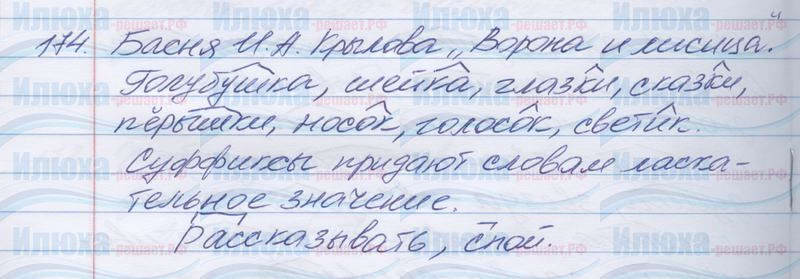 174. Басня И. А. Крылова „Ворона и лисица“.
Голубушка, шейка, глазки, сказки,
пёрышки, носок, голосок, светик.
Суффиксы придают словам ласка-
тельное значение.
Рассказывать, спой.